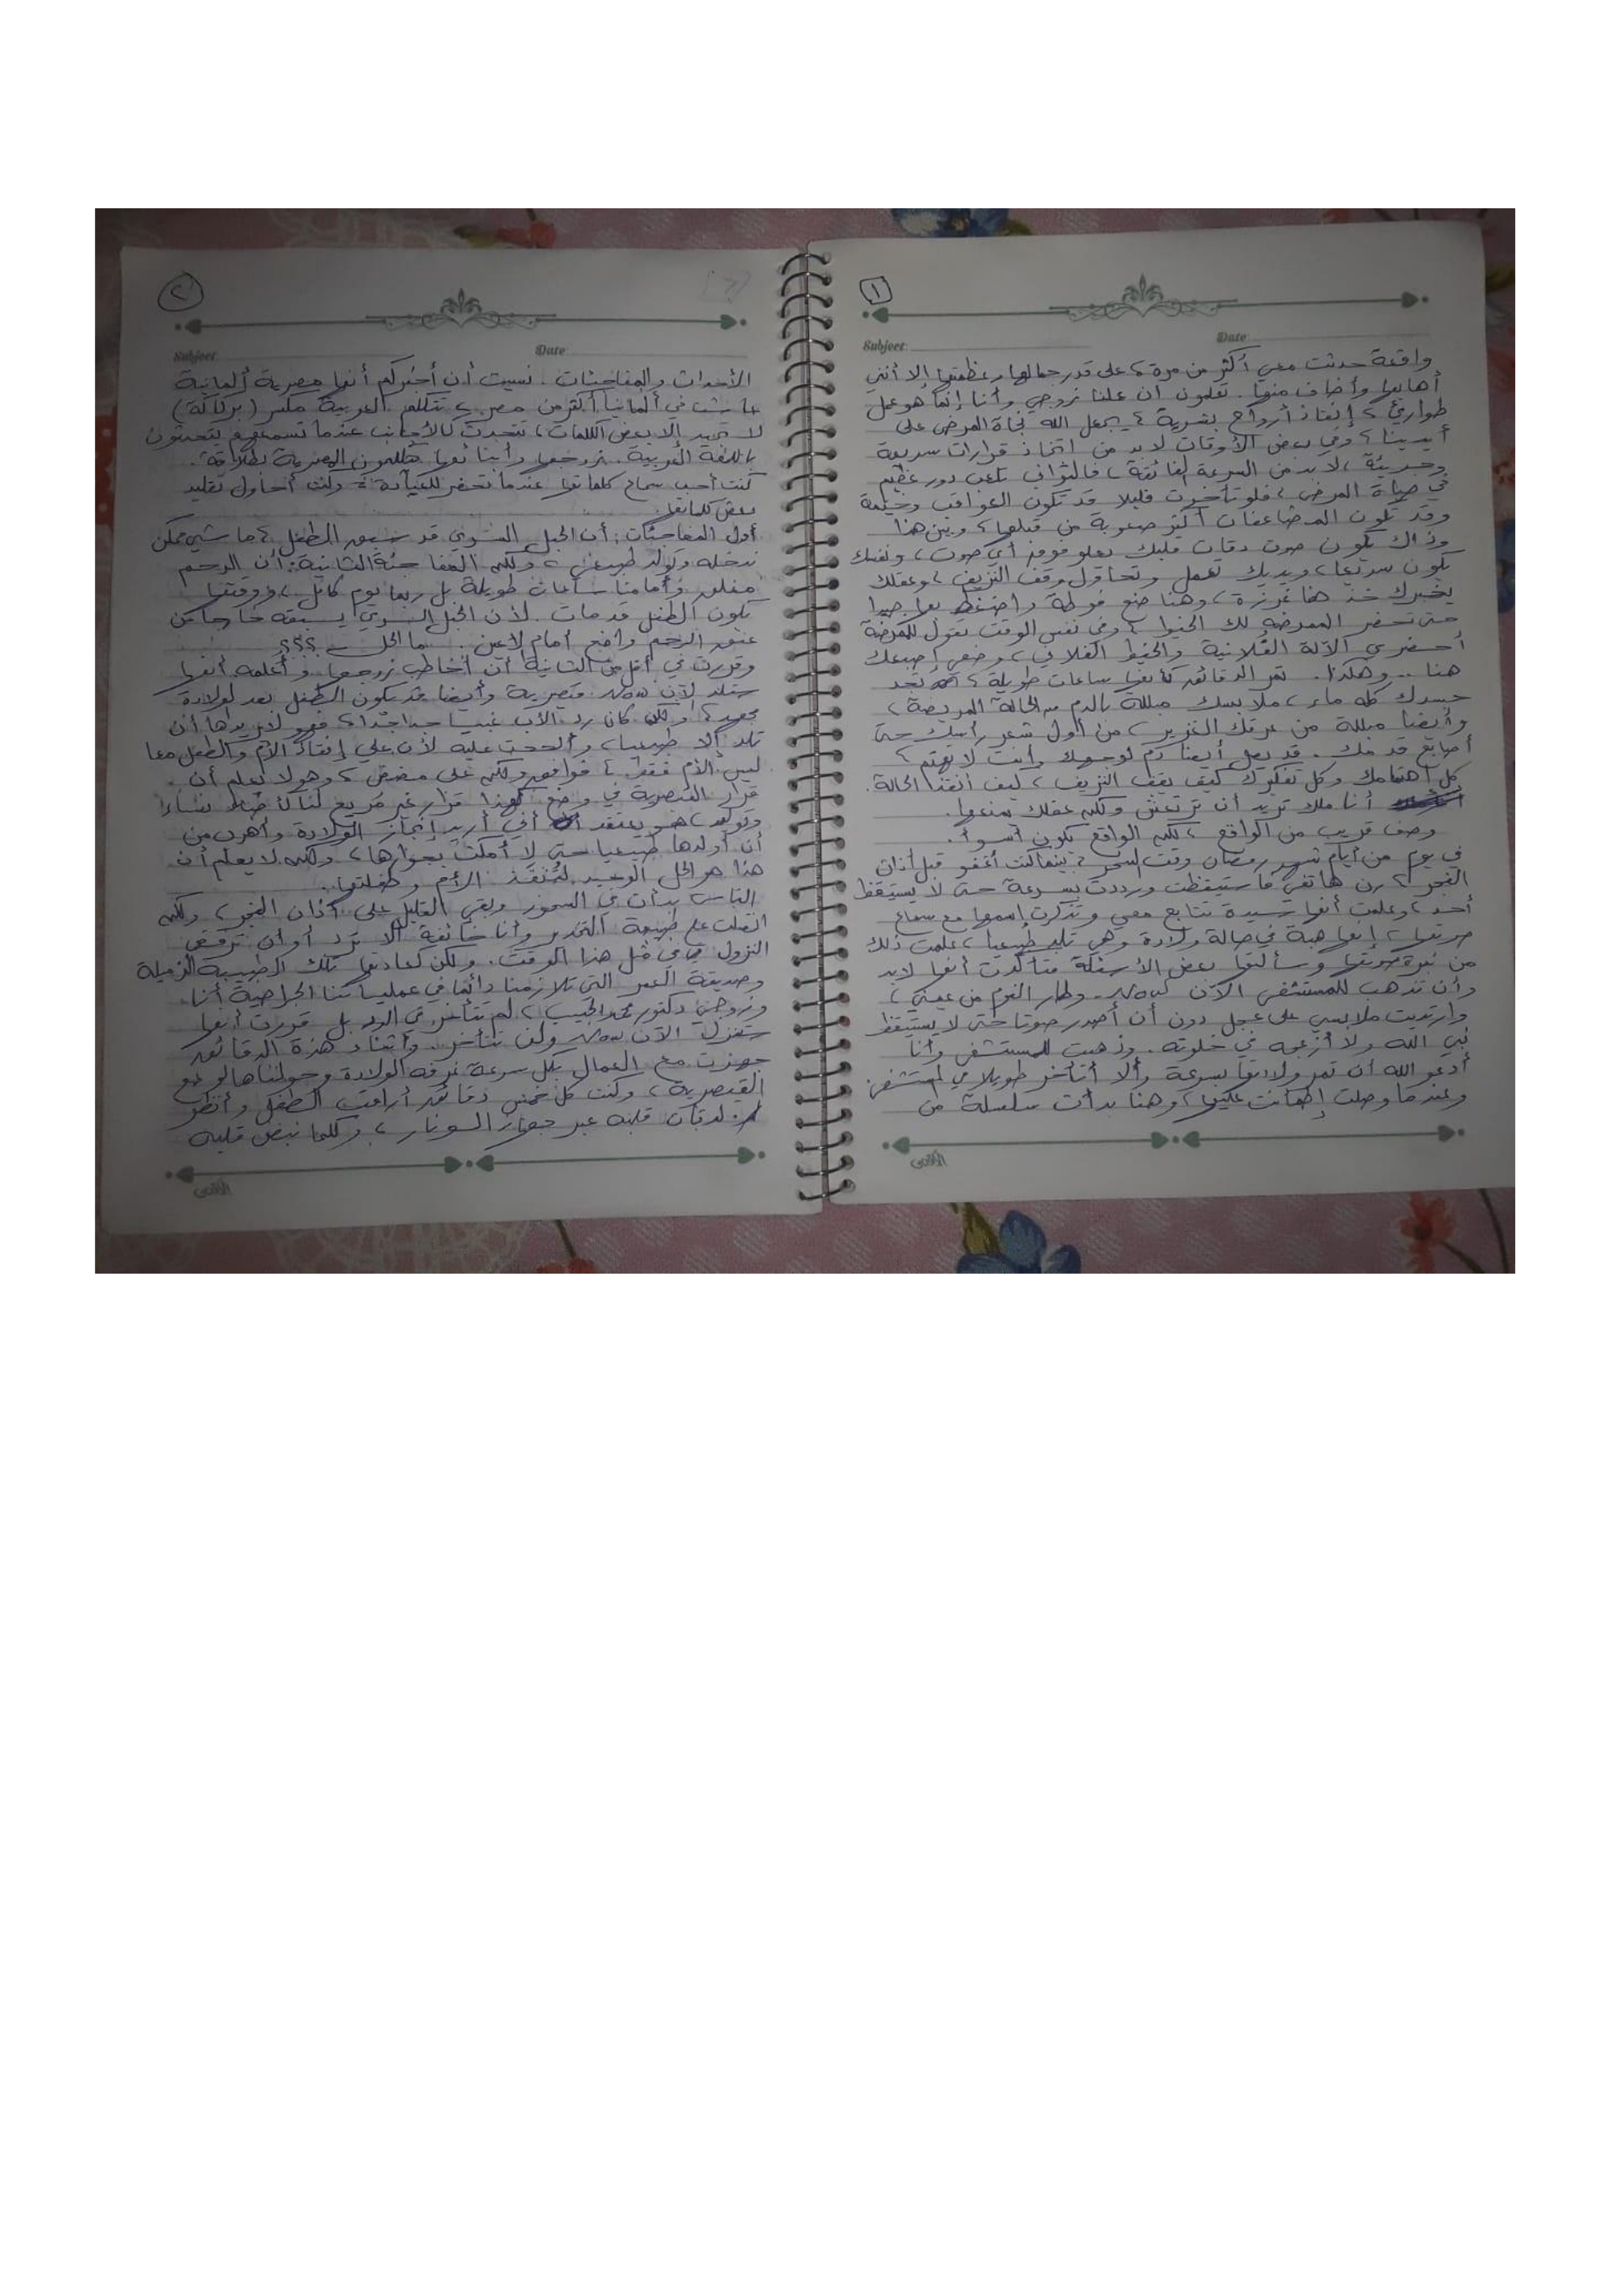 ١
Subject: Date:
واقعة حدثت معي أكثر من مرة، على قدر جمالها وعظمتها إلا أنني
أهابها وأخاف منها. تعلمون أن عملنا زوجي وأنا إنما هو عمل
طوارئ، إنقاذ أرواح بشرية، يجعل الله نجاة المرضى على
أيدينا، وفي بعض الأوقات لابد من اتخاذ قرارات سريعة
وجريئة، لابد من السرعة الفائقة، فالثواني تلعب دور عظيم
في حياة المرضى، فلو تأخرت قليلا قد تكون العواقب وخيمة
وقد تكون المضاعفات أكثر صعوبة من قبلها، وبين هذا
وذاك يكون صوت دقات قلبك يعلو فوق أي صوت، ونفسك
يكون سريعا، ويديك تعمل وتحاول وقف النزيف، وعقلك
يخبرك خذ هنا غرزة، وهنا ضع فوطة واضغط بها جيدا
حتى تحضر الممرضة لك الخيط، وفي نفس الوقت تقول للممرضة
أحضري الآلة الفلانية والخيط الفلاني، وضعي إصبعك
هنا .. وهكذا. تمر الدقائق كأنها ساعات طويلة، تجد
جسدك كله ماء، ملابسك مبللة بالدم من الحالة المريضة،
وأيضا مبللة من عرقك الغزير، من أول شعر رأسك حتى
أصابع قدمك. قد يصل أيضا دم لوجهك وأنت لا تهتم،
كل اهتمامك وكل تفكيرك كيف يقف النزيف، كيف أنقذ الحالة.
أناملك تريد أن ترتعش ولكن عقلك يمنعها.
وصف قريب من الواقع، لكن الواقع يكون أسوأ.
في يوم من أيام شهر رمضان وقت السحر، بينما كنت أغفو قبل أذان
الفجر، رن هاتفي فاستيقظت ورددت بسرعة حتى لا يستيقظ
أحد، وعلمت أنها سيدة تتابع معي وتذكرت اسمها مع سماع
صوتها، إنها هبة في حالة ولادة وهي تلد طبيعيا، علمت ذلك
من نبرة صوتها وسألتها بعض الأسئلة فتأكدت أنها لابد
وأن تذهب للمستشفى الآن now. وطار النوم من عيني،
وارتديت ملابسي على عجل دون أن أصدر صوتا حتى لا يستيقظ
نبي الله ولا أزعجه في خلوته. وذهبت للمستشفى وأنا
أدعو الله أن تمر ولادتها بسرعة وألا أتأخر طويلا في المستشفى.
وعندما وصلت اطمأنت عليها، وهنا بدأت سلسلة من
٢
Subject: Date:
الأحداث والمفاجئات. نسيت أن أخبركم أنها مصرية ألمانية
عاشت في ألمانيا أكثر من مصر، تتكلم العربية مكسر (بركاكة)
لا تجيد إلا بعض الكلمات، تتحدث كالأجانب عندما تسمعهم يتحدثون
باللغة العربية. زوجها وأبنائها يتكلمون المصرية بطلاقة.
كنت أحب سماع كلماتها عندما تحضر للعيادة، وكنت أحاول تقليد
بعض كلماتها.
أول المفاجئات: أن الحبل السري قد سبق الطفل، ماشي ممكن
ندخله ويولد طبيعي، ولكن المفاجئة الثانية: أن الرحم
مغلق وأمامنا ساعات طويلة بل ربما يوم كامل، ووقتها
يكون الطفل قد مات. لأن الحبل السري يسبقه خارجا من
عنق الرحم واضح أمام الأعين. ما الحل ؟؟؟
وقررت في أقل من الثانية أن أخاطب زوجها، وأعلمه أنها
ستلد الآن now قيصرية وأيضا قد يكون الطفل بعد الولادة
مجهد، ولكن كان رد الأب غبيا جدا جدا، فهو لا يريدها أن
تلد إلا طبيعيا، وألححت عليه لأن علي إنقاذ الأم والطفل معا
ليس الأم فقط، فوافق ولكن على مضض، وهو لا يعلم أن
قرار القيصرية في وضع كهذا قرار غير مريح لنا كأطباء نساء
وتوليد، هو يعتقد أني أريد إنجاز الولادة وأهرب من
أن أولدها طبيعيا حتى لا أمكث بجوارها، ولكن لا يعلم أن
هذا هو الحل الوحيد لننقذ الأم وطفلها.
الناس بدأت في السحور وبقي القليل على أذان الفجر، ولكن
اتصلت على طبيبة التخدير وأنا خائفة ألا ترد أو أن ترفض
النزول في مثل هذا الوقت. ولكن كعادتها تلك الطبيبة الزميلة
وصديقة العمر التي تلازمنا دائما في عملياتنا الجراحية أنا
وزوجي دكتور محمد الحبيب، لم تتأخر في الرد بل قررت أنها
ستنزل الآن now ولن تتأخر. وأثناء هذه الدقائق
جهزت مع العمال بكل سرعة غرفة الولادة وحولناها لوضع
القيصرية، وكنت كل خمس دقائق أراقب الطفل وأنظر
لدقات قلبه عبر جهاز السونار، وكلما نبض قلبه